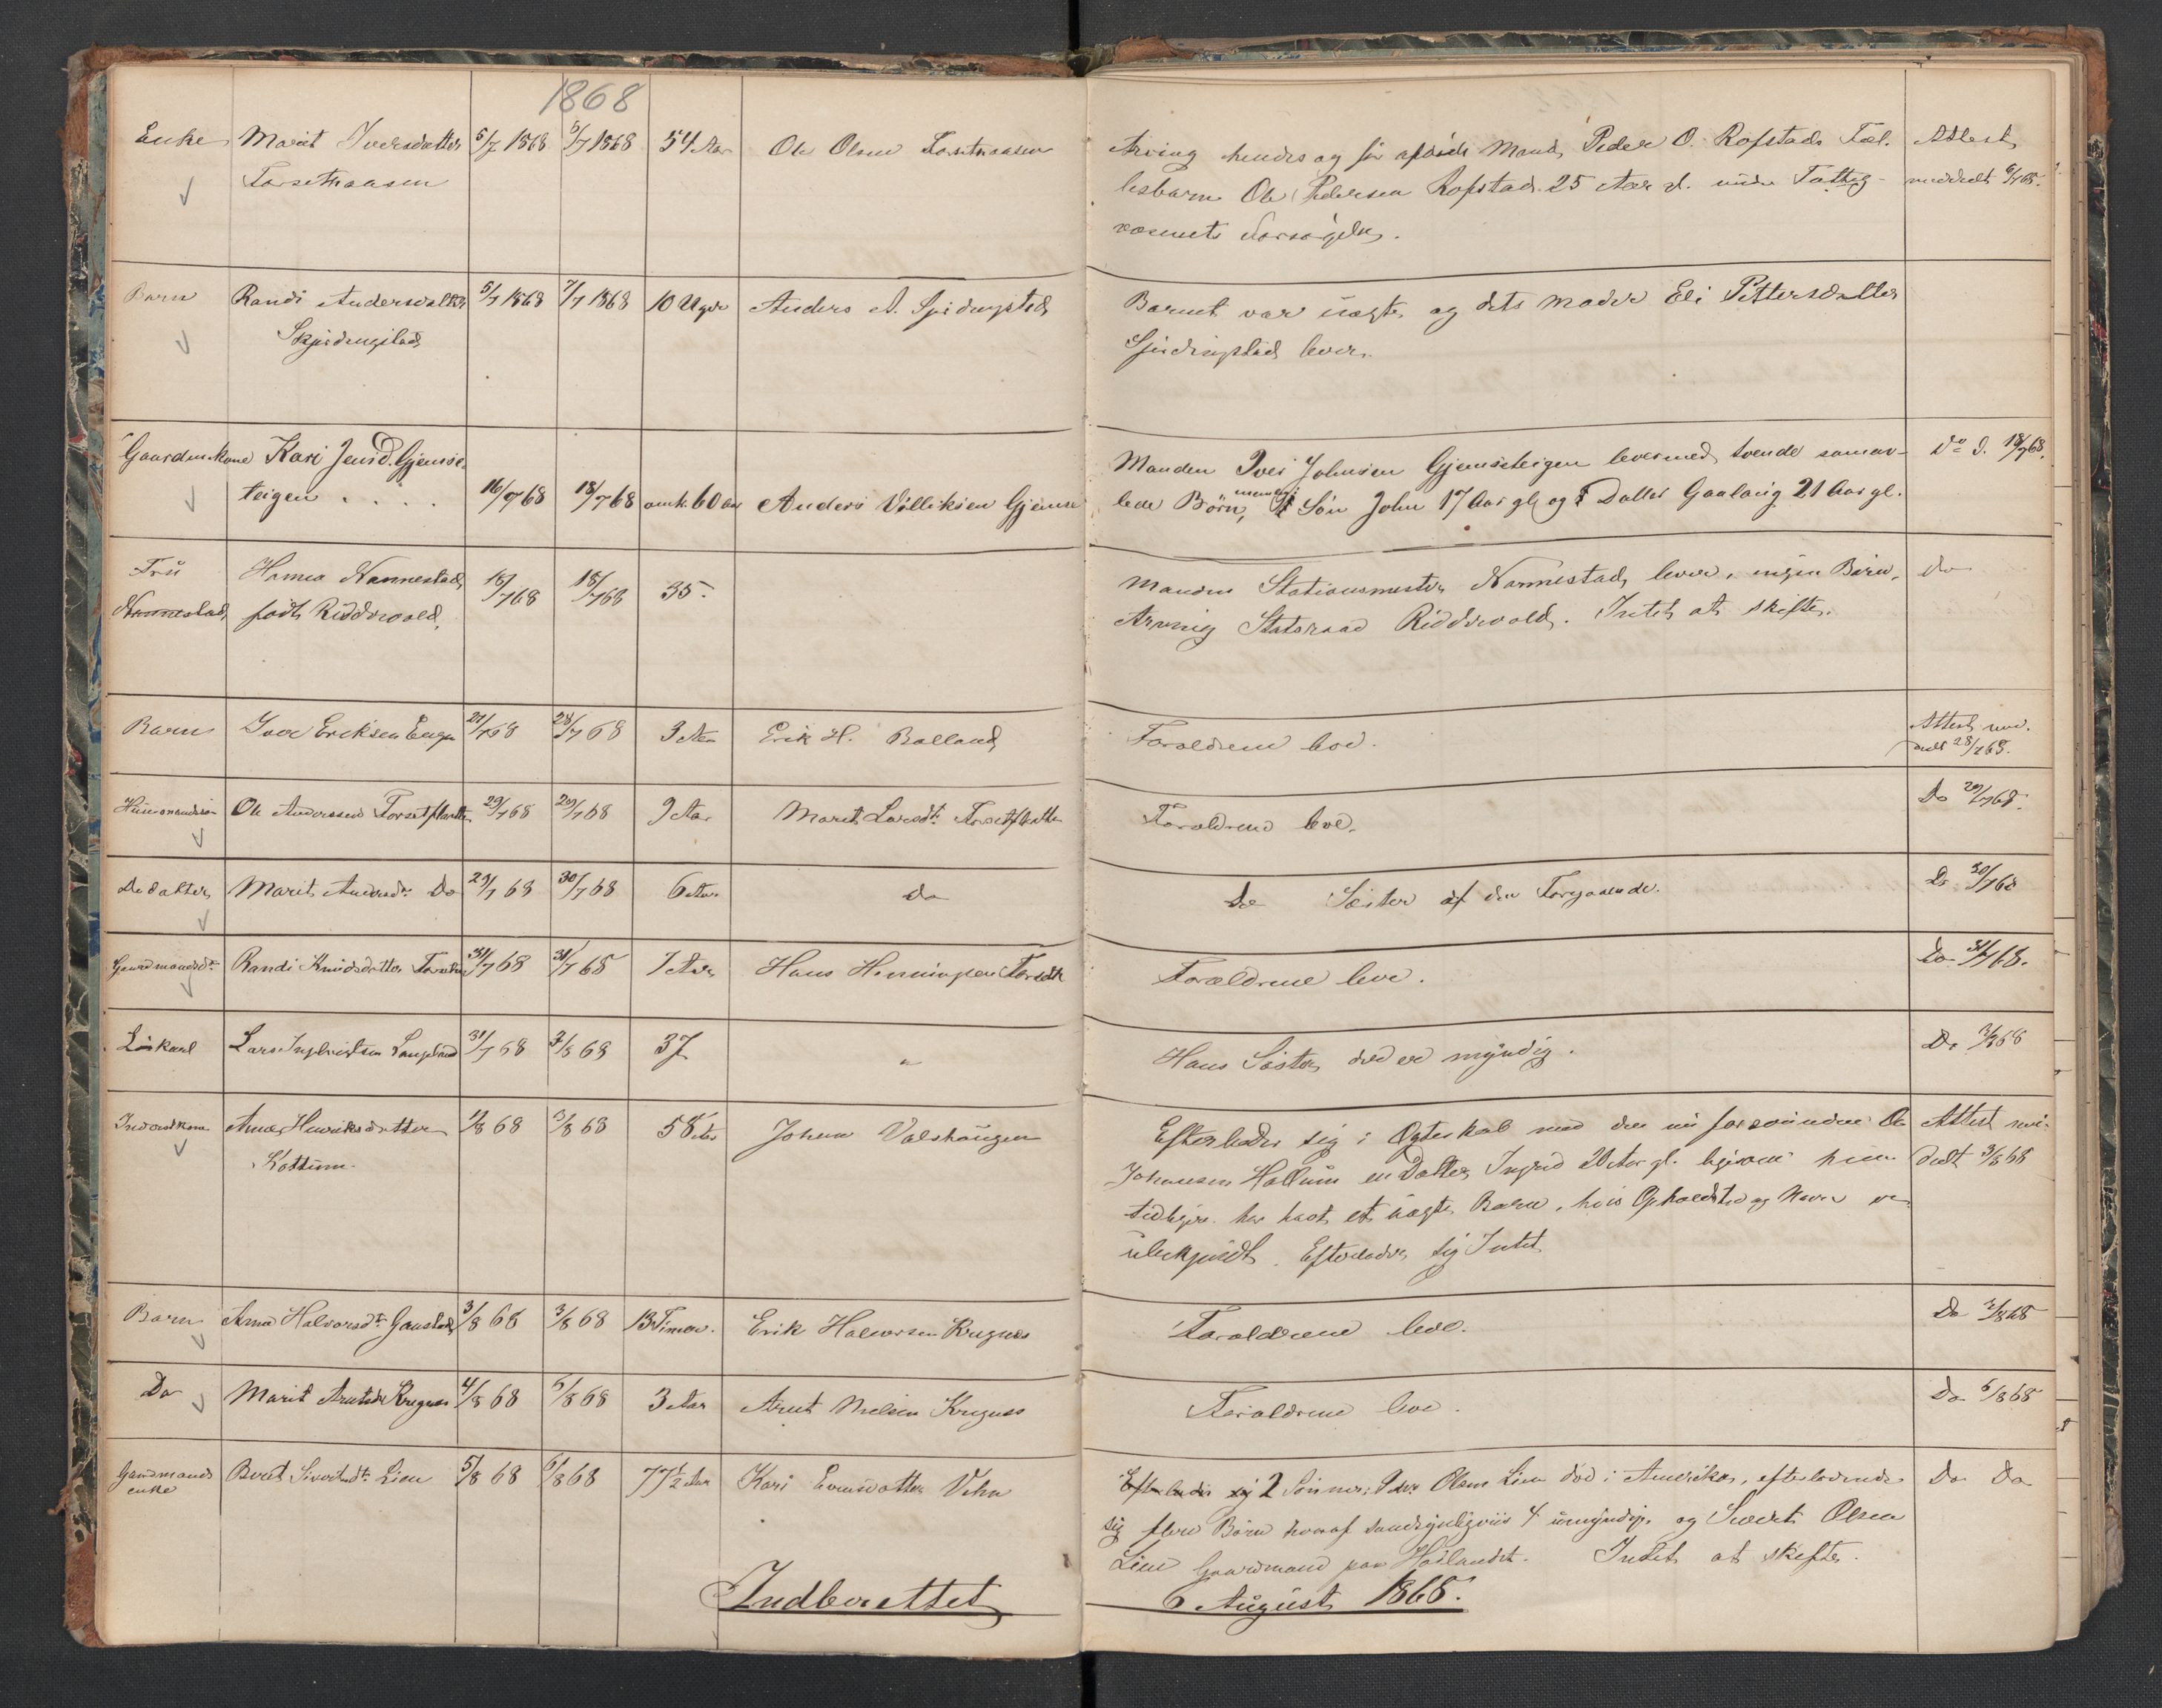 1868
Enke Marit Iversdatter 5/7 1868 5/7 1868 54 Aar Ole Olsen Arving hendes og før afdøde Mand, Peder O. Rofstads Fæl- Attest
lesbarn Ole Pedersen Rofstad 25 Aar gl. under Fattig- meddelt 6/7 68.
væsenets Forsørgelse.
Barn Randi Andersdatter 5/7 1868 7/7 1868 10 Uger Anders A. Barnet var uægte og dets Moder Eli Pettersdatter
lever.
Gaardm. Kone Kari Jensd. Gjemse-
teigen . . . . 16/7 68 18/7 68 omk. 60 Aar Anders Gjemse Manden Iver Johnsen Gjemseteigen lever med tvende samav- Do d. 18/7 68.
lede Børn, nemlig: Søn John 17 Aar gl. og Datter 21 Aar gl.
Fru Hanna Nannestad 18/7 68 18/7 68 35. Manden Stationsmester Nannestad, lever, ingen Børn, do
Nannestad, født Riddervold, Arving Statsraad Riddervold. Intet at skifte.
Barn Iver Eriksen Engen 21/7 68 28/7 68 3 Aar Erik H. Bolland Forældrene leve. Attest med-
delt 28/7 68.
Husmandssøn Ole Anderssen Forsetflatten 29/7 68 29/7 68 9 Aar Marit Larsdt. Forsetflatten Forældrene leve. Do 29/7 68.
Do datter Marit Andersdt. Do 29/7 68 30/7 68 6 Aar do Do Søster af den Forgaaende. Do 30/7 68
Gaardmandsdt. Randi Knudsdatter 31/7 68 31/7 68 7 Aar Hans Henningsen Forældrene leve. Do 31/7 68.
Løskarl Lars Langeland 31/7 68 3/8 68 37 " Hans Søster, der er myndig. Do 3/8 68
Inderstkone Anne Henriksdatter 1/8 68 3/8 68 58 Aar Johan Valshaugen Efterlader sig i Ægteskab med den nu forsvundne Ole Attest med-
Johansen en Datter, Ingrid 20 Aar gl. ligesom hun delt 3/8 68
tidligere har havt et uægte Barn, hvis Opholdsted og Navn er
ubekjendt. Efterlader sig Intet
Barn Anne Halvorsdt. Gaustad 3/8 68 3/8 68 13 Timer. Erik Halvorsen Krugnes Forældrene leve. Do 3/8 68
Do Marit Arntsdt. Krugnes 4/8 68 5/8 68 3 Aar Arnt Nielsen Krugnes Forældrene leve. Do 6/8 68
Gaardmands Beret Sivertsdt. Lien 5/8 68 6/8 68 77 1/2 Aar Kari Evensdatter Efterlader sig 2 Sønner: Peder Olsen Lien død i Amerika, efterladende Do Do
enke sig flere Børn hvoraf sandsynligviis 4 umyndige, og Sivert Olsen
Lien Gaardmand paa Intet at skifte.
Indberettet 6 August 1868.